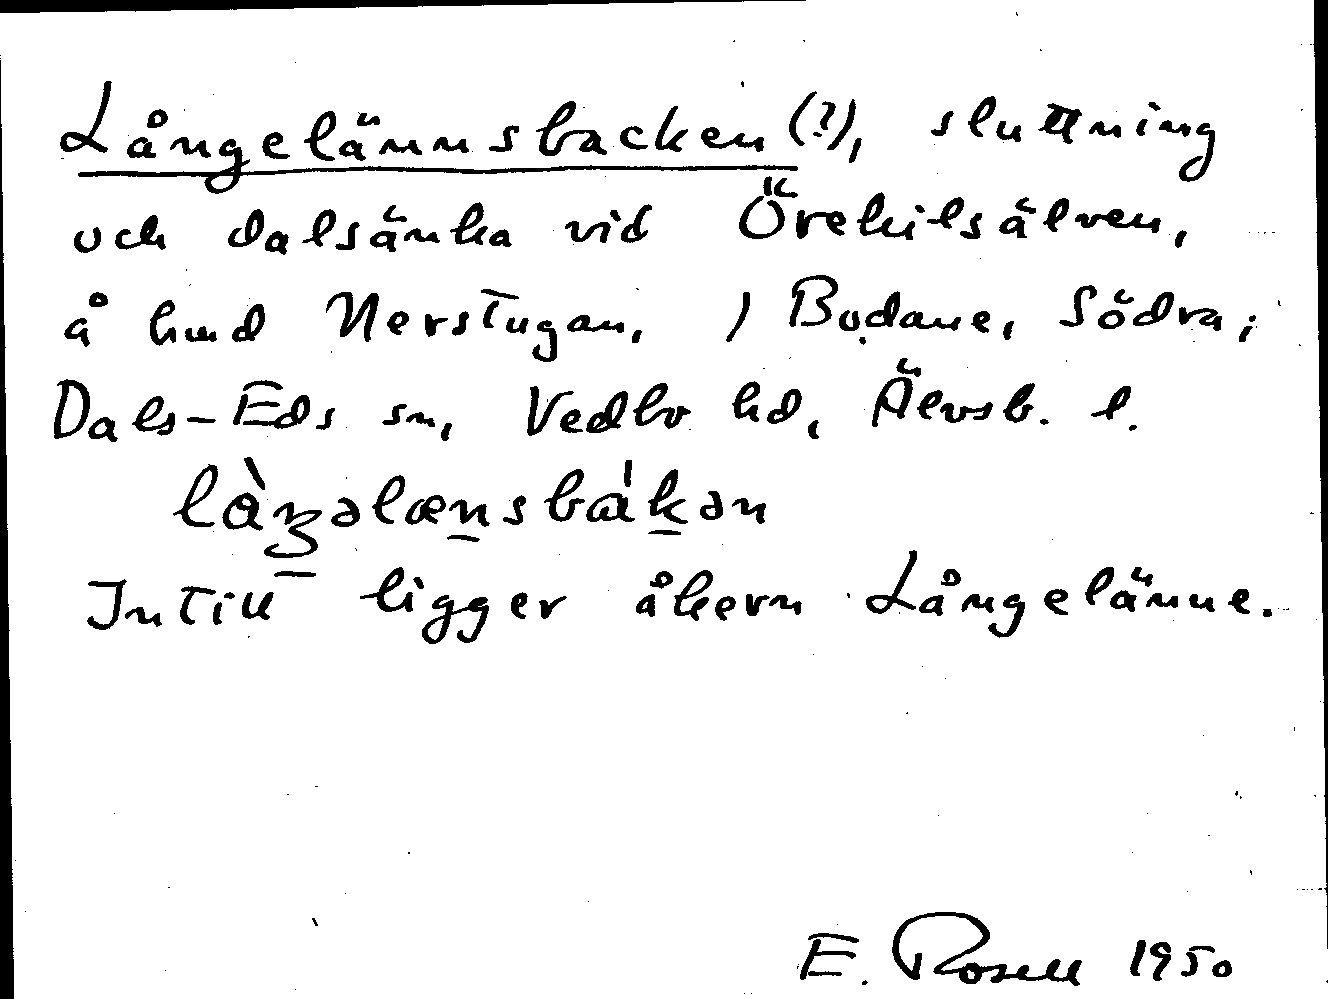 Långelännsbacken (?), sluttning
och dalsänka vid Örekilsälven,
å hmd Nerstugan, i Bodane, Södra;
Dals-Eds sn, Vedbo hd, Älvsb. l.
làŋəlænsbákən
Intill ligger åkern Långelänne.
E. Rosell 1950